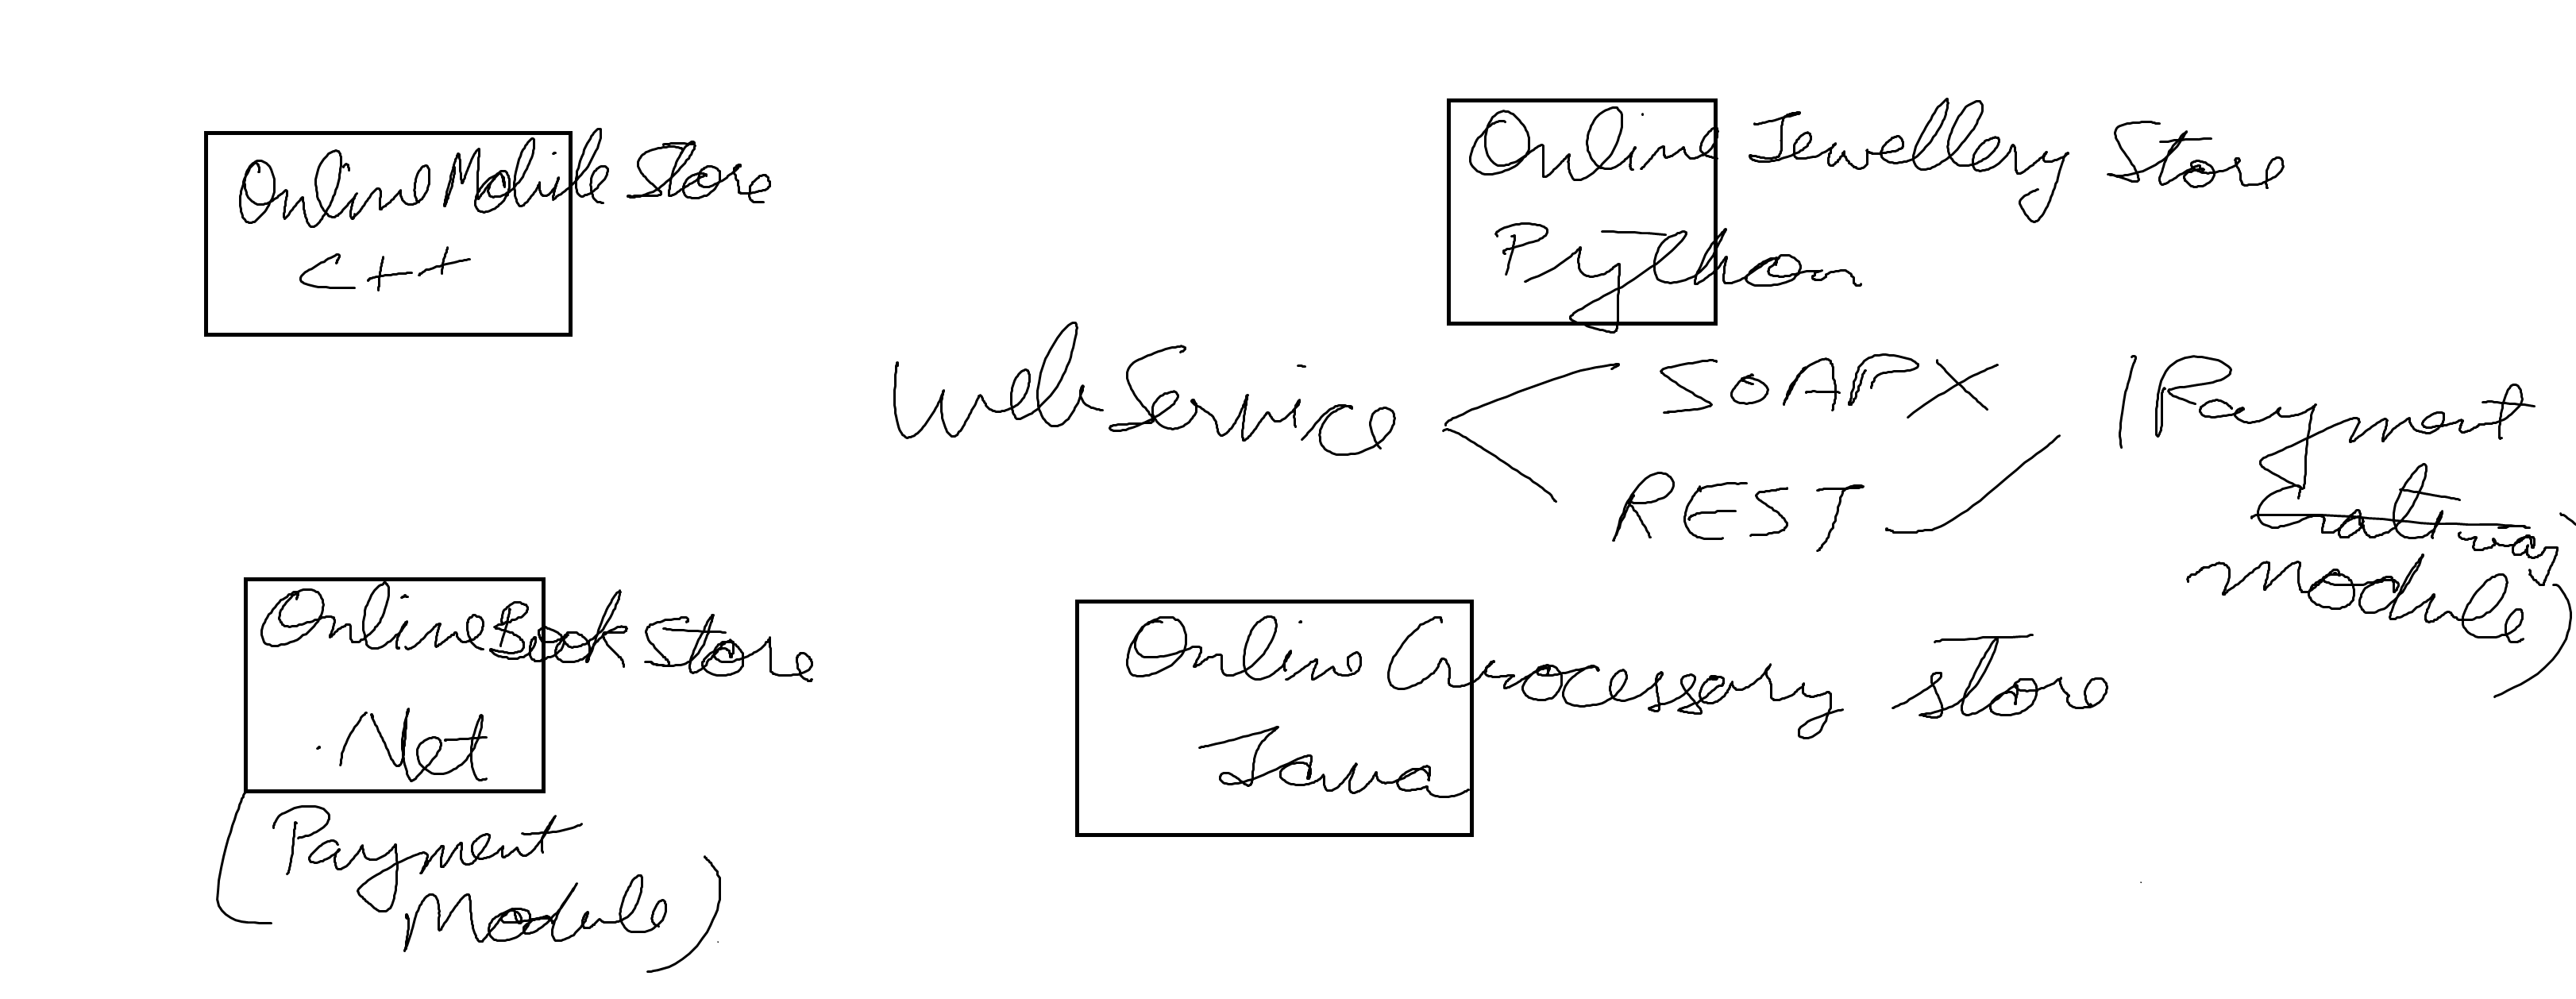 Online Mobile Store
C++
Online Jewellery Store
Python
Web Service
SOAP X
REST
(Payment
Gateway
Module)
Online Book Store
.Net
(Payment
Module)
Online Store
Java